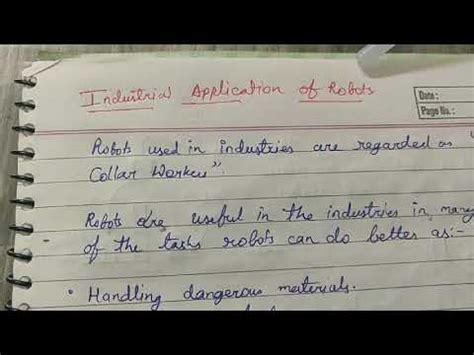 Industrial Application of Robots
Date :
Page No. :
Robots used in industries are regarded as
Collar Worker".
Robots are useful in the industries in many
of the tasks robots can do better as:-
• Handling dangerous materials.